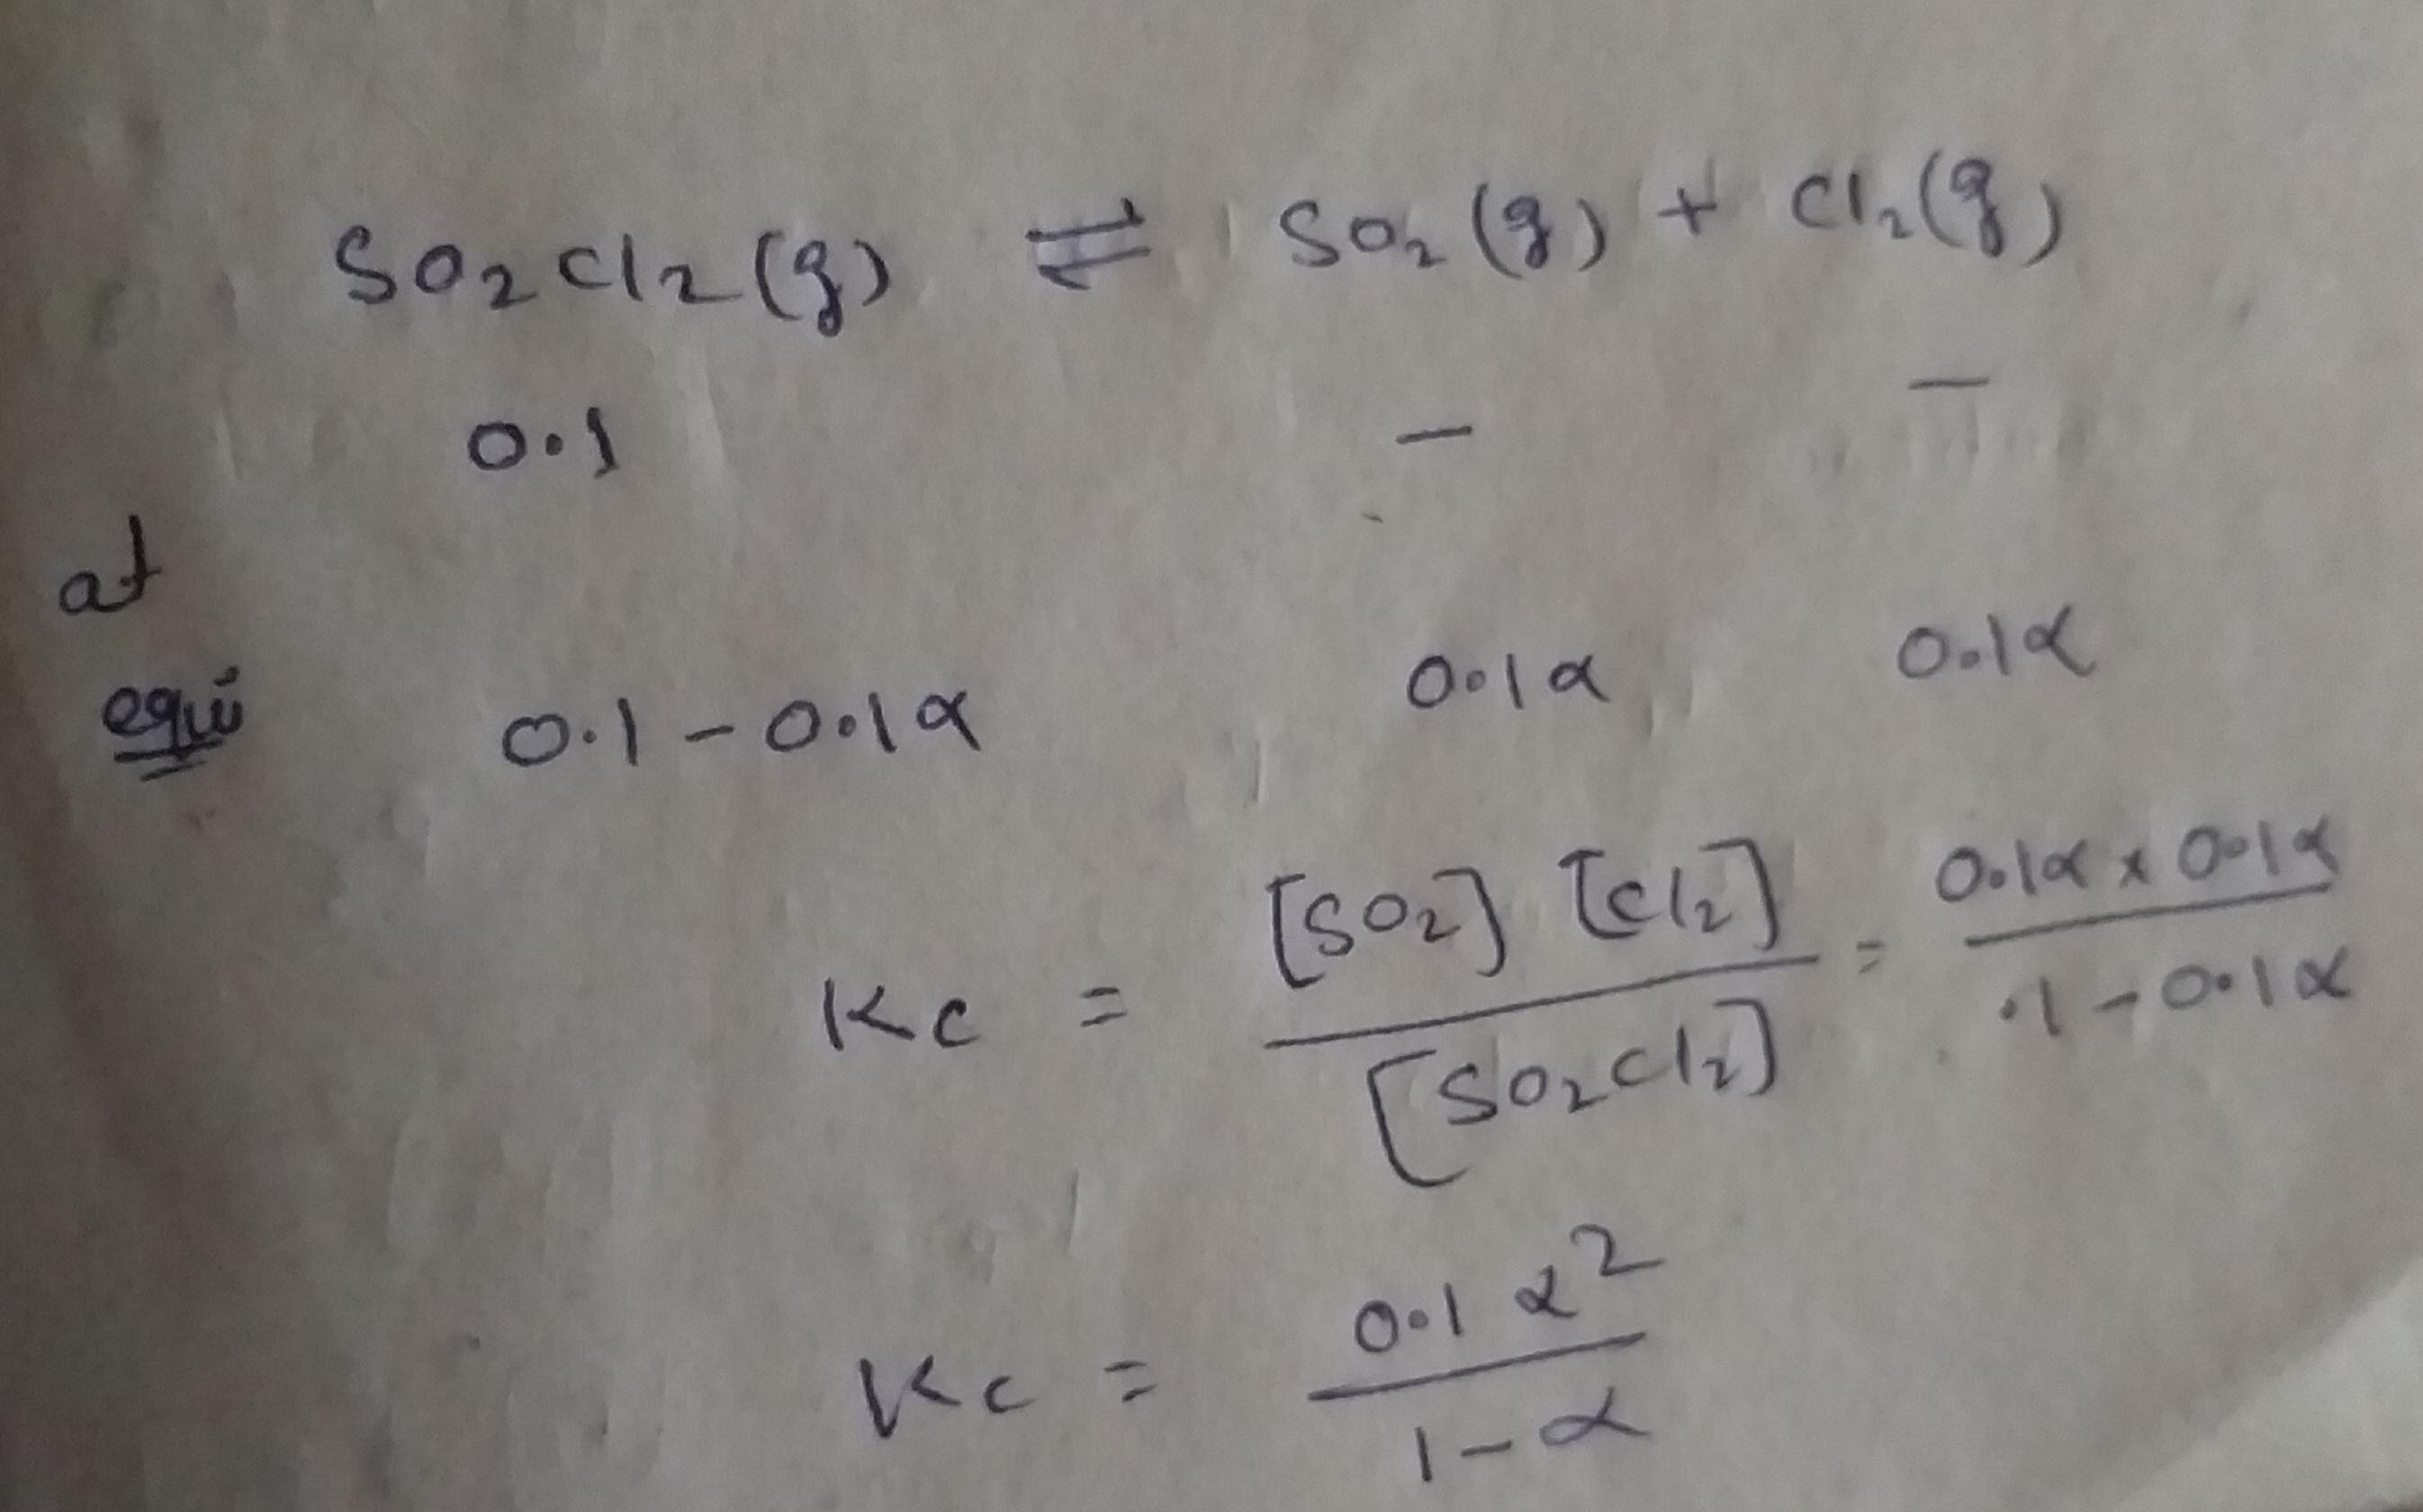 SO₂Cl₂(g) ⇌ SO₂(g) + Cl₂(g)
0.1 — —
at
equi 0.1 - 0.1α 0.1α 0.1α
Kc = [SO₂] [Cl₂] / [SO₂Cl₂] = 0.1α × 0.1α / .1 - 0.1α
Kc = 0.1 α² / 1 - α